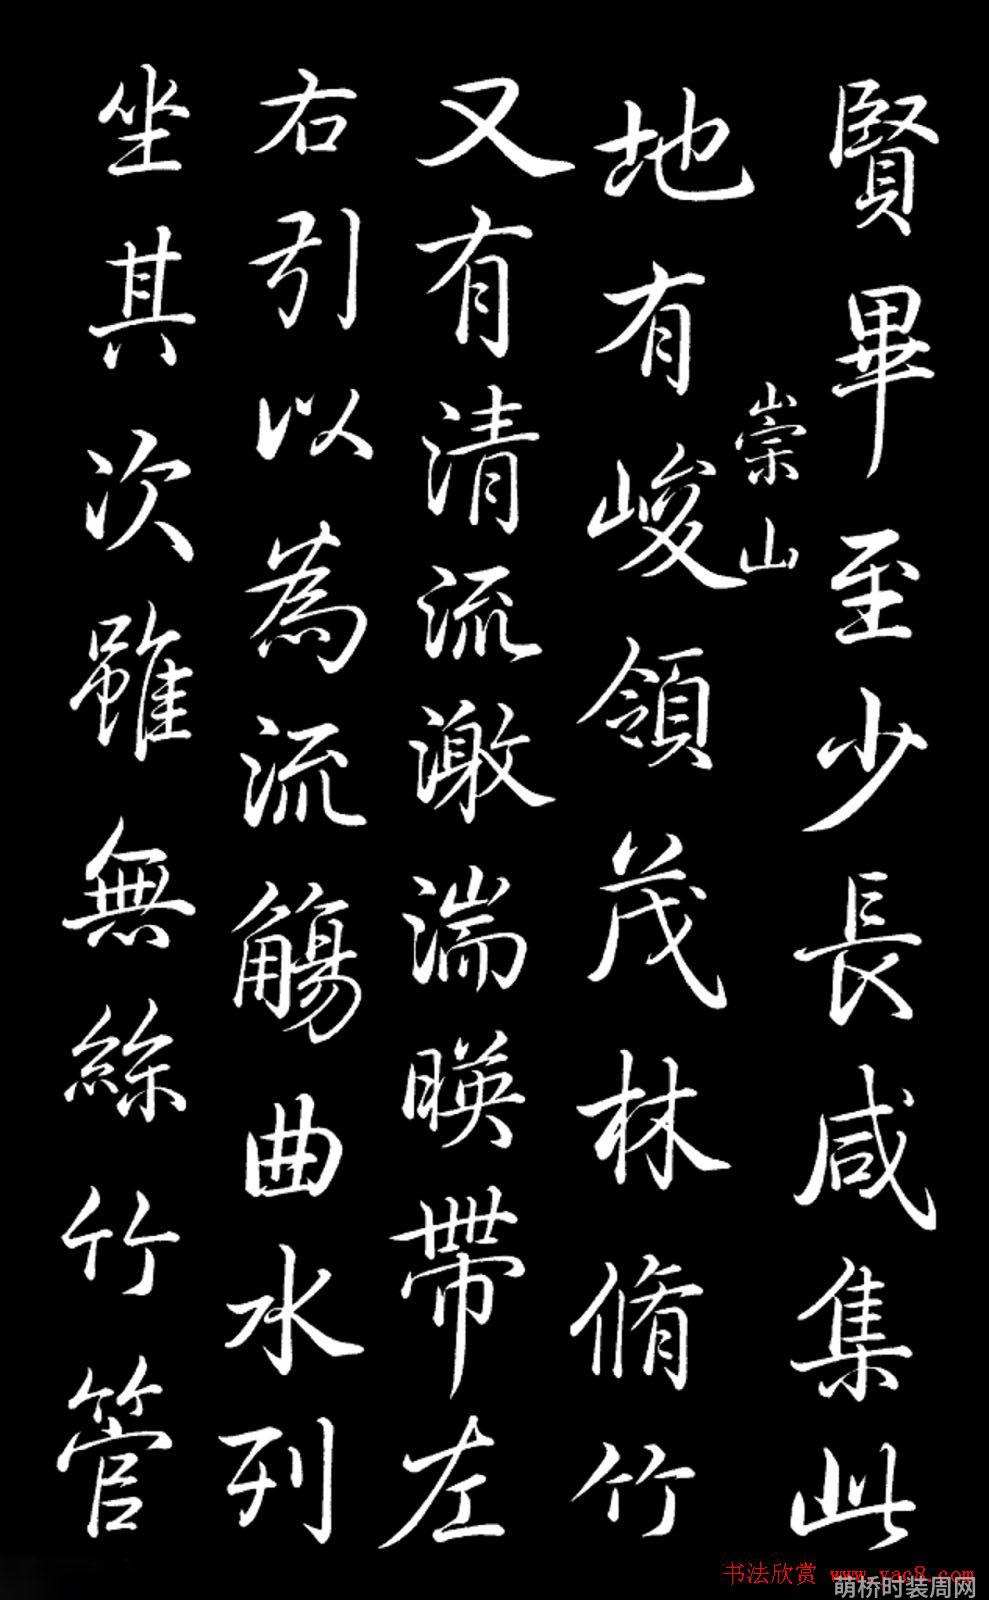 賢畢至少長咸集此
地有峻領茂林脩竹
崇山
又有清流激湍暎帶左
右引以為流觴曲水列
坐其次雖無絲竹管
书法欣赏 www.yac8.com
萌桥时装周网